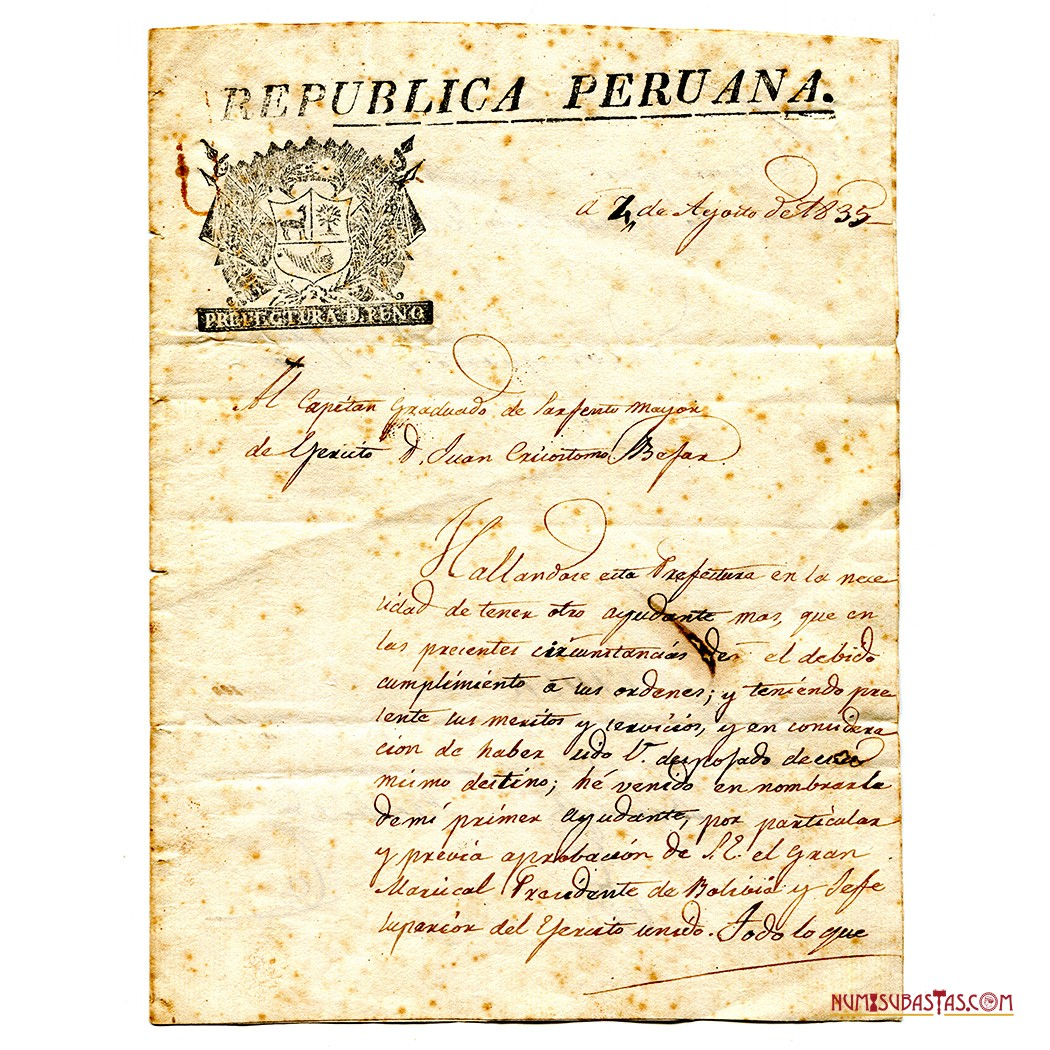 REPUBLICA PERUANA.
PREFECTURA D. PUNO
A de Agosto de 1835
Al Capitan Graduado de Sarjento Mayor
de Ejercito D. Juan Cricostomo
Hallandose esta Prefeitura en la nece
sidad de tener otro ayudante mas, que en
las presentes circunstancias el debido
cumplimiento á sus ordenes; y teniendo pre
sente sus meritos y servicios, y en considera
cion de haber sido V. despojado de
mismo destino; hé venido en nombrarle
de mi primer ayudante, por particular
y previa aprobación de S.E. el Gran
Mariscal Presidente de Bolivia y Jefe
superior del Ejercito unido. Todo lo que
NUMISUBASTAS.COM